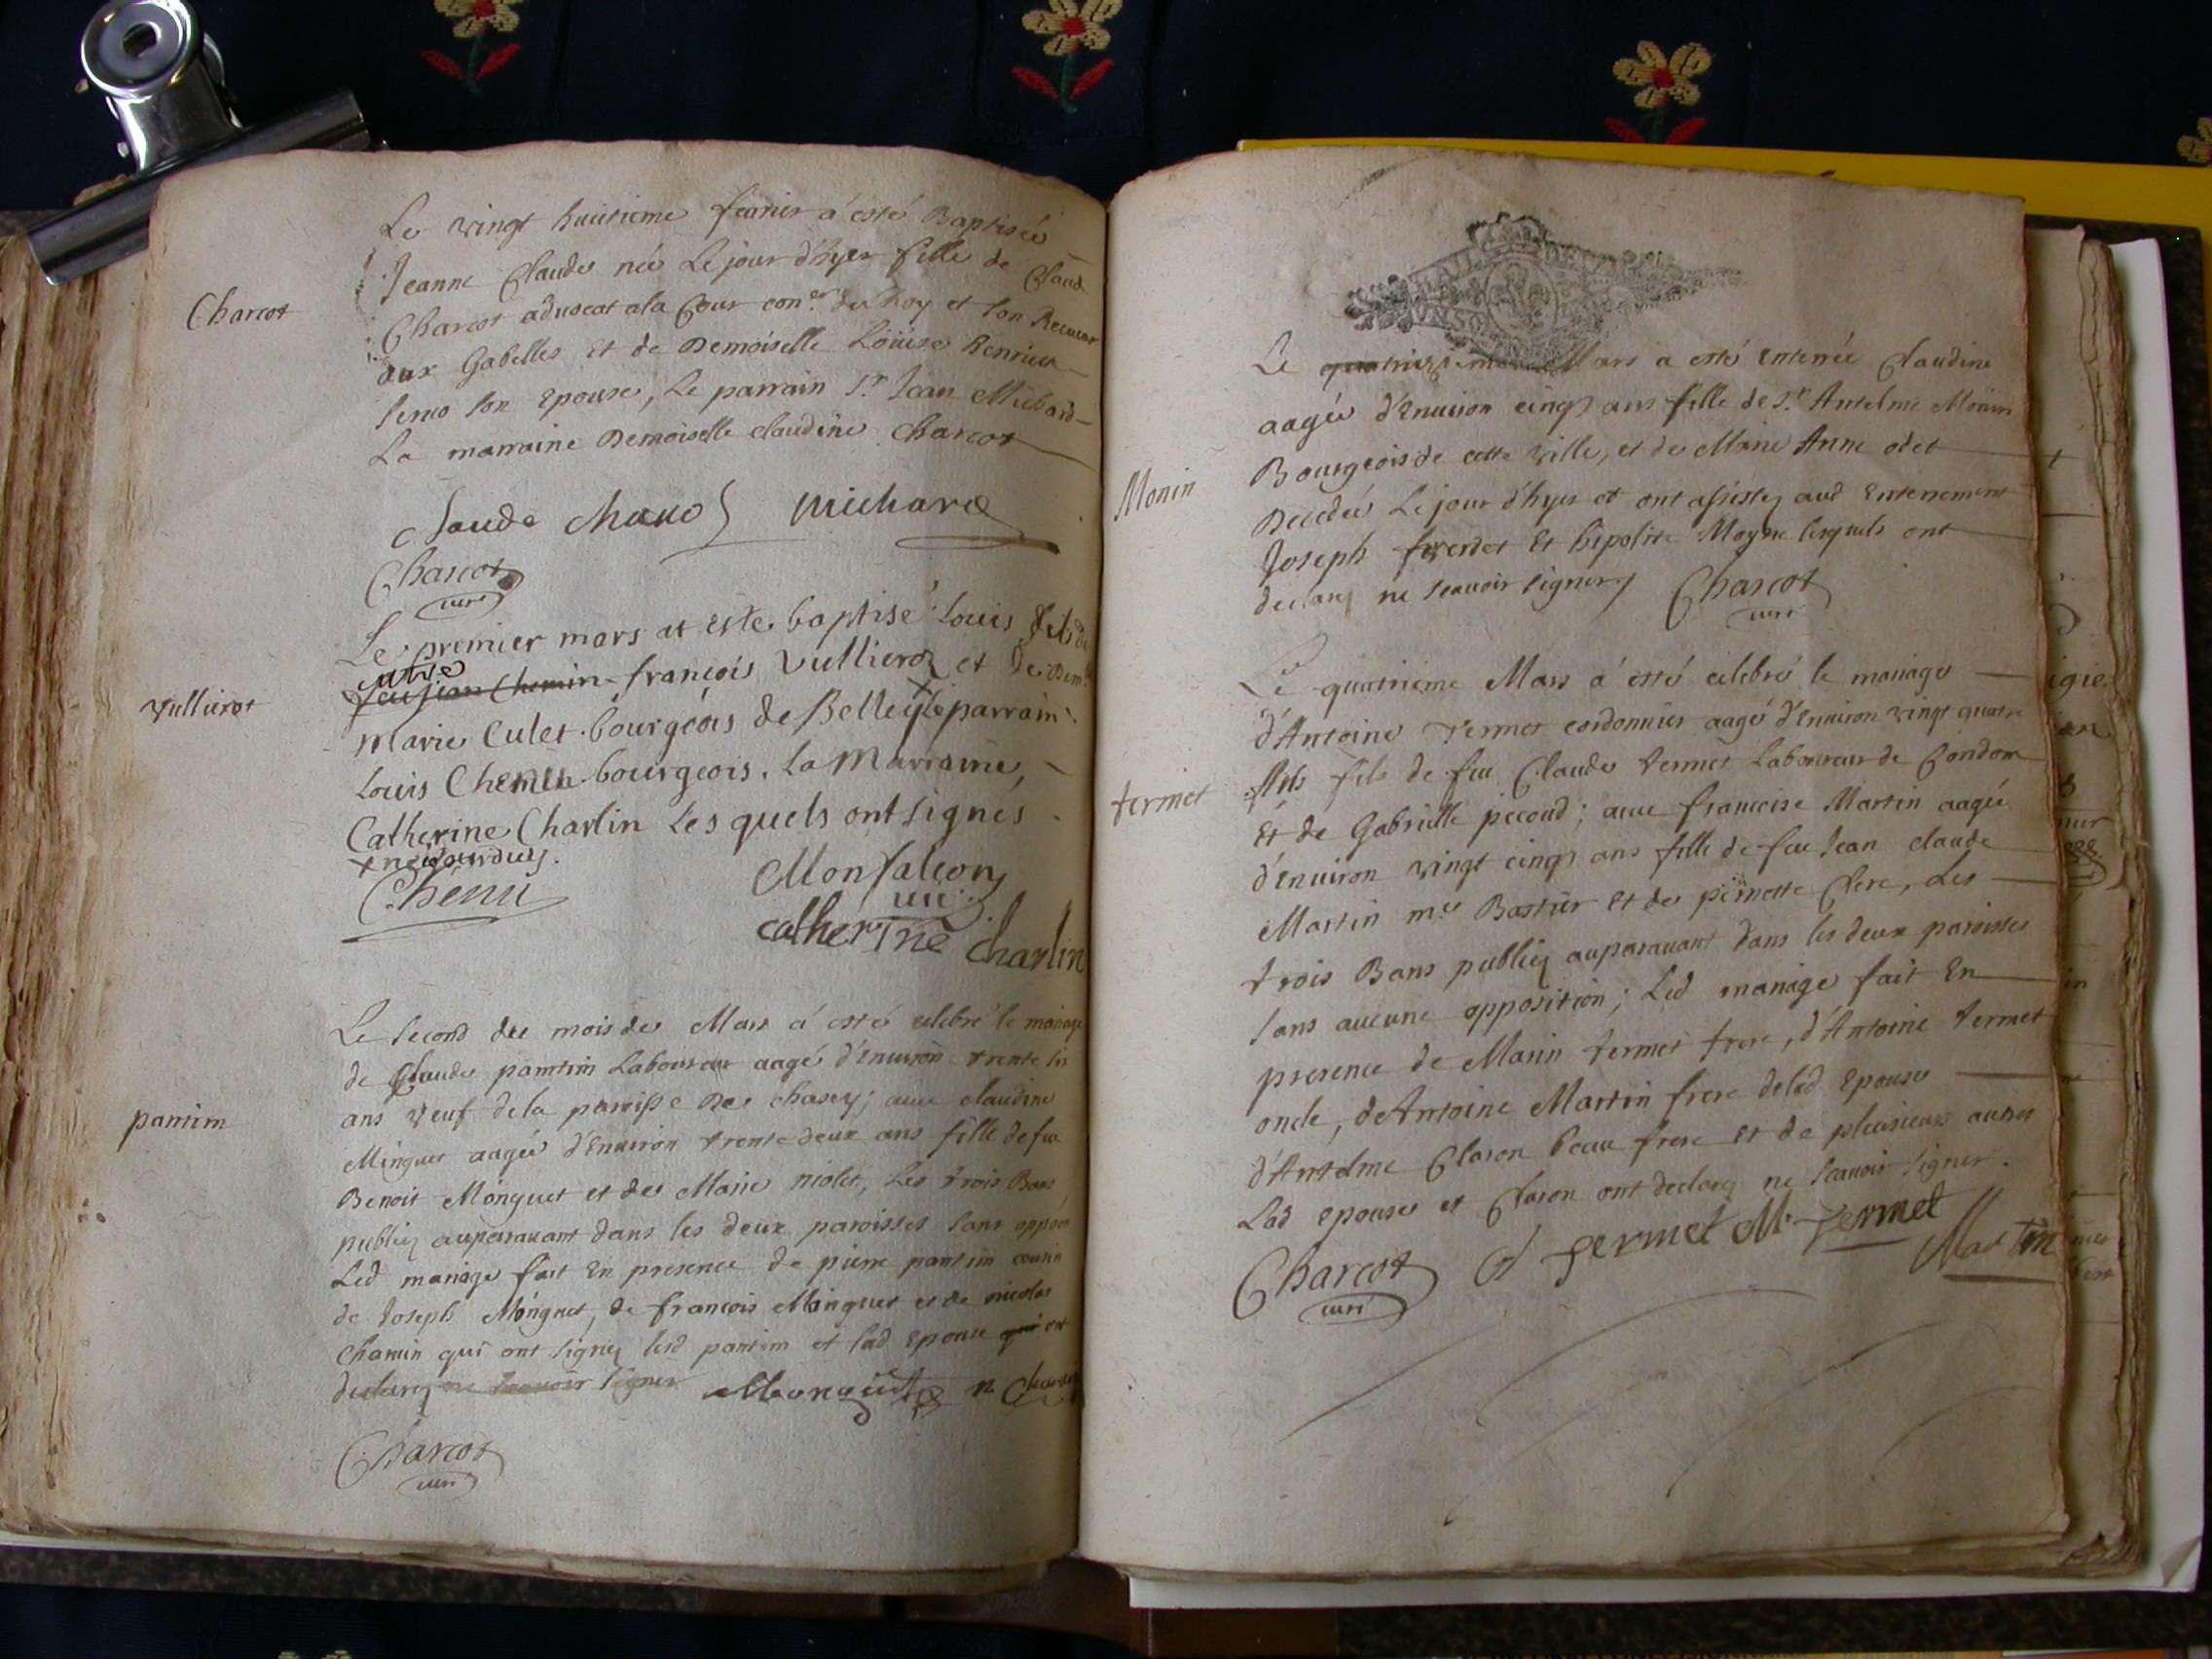 Le vingt huitieme feurier a esté Baptisée
Jeanne Claude née Le jour d'hyer fille de Claude
Charcot
Charcot aduocat a la Cour con.er du Roy et son Receueur
aux Gabelles et de Demoiselle Loüise
son Epouse, Le parrain S.r Jean Michard
La marraine Demoiselle claudine Charcot
Claude Michard
Charcot
curé
Le premier mars at este baptisé Louis fils de
feu jean Chemin françois Vullierot et de Dem.lle
Vullierot
Marie Culet bourgeois de Belley le parrain
Louis Chemin bourgeois. La Marraine,
Catherine Charlin Les quels ont signés
Chenu
Monfalcon
vic.
Catherine Charlin
Le second du mois de Mars a esté celebré le mariage
de Claude pantim Laboureur aagé d'Enuiron trente six
ans veuf de la paroisse De chasey; auec claudine
pantim
Minguet aagée d'Enuiron trente deux ans fille de feu
Benoit Monguet et de Marie niolet, Les trois Bans
publiez auparauant dans les deux paroisses sans oppôon
Led mariage fait En presence de pierre pantim cousin
de Joseph Mónguet, de francois Minguet et de nicolas
Chamin qui ont signez led pantim et lad Epouse qui ont
declarez ne scauoir signer Monguet n Chamin
Charcot
curé
Le Mars a esté Enterrée Claudine
aagée d'Enuiron cinq ans fille de S.r Antelme Monin
Bourgeois de cette ville, et de Marie Anne odet
Monin
Decedée Le jour d'hyer et ont assistez aud Enterrement
Joseph et hipolite Moyne lesquels ont
declarez ne scauoir signer Charcot
curé
Le quatrieme Mars a esté celebré le mariage
d'Antoine Termet cordonnier aagé d'Enuiron vingt quatre
Ans fils de feu Claude termet Laboureur de Condom
termet
Et de Gabrielle pecoud; auec francoise Martin aagée
d'Enuiron vingt cinq ans fille de feu Jean claude
Martin m.e Bastier et de pernette Clerc, Les
trois Bans publiez auparauant dans les deux paroisses
sans aucune opposition; Led mariage fait En
presence de Marin termet frere, d'Antoine termet
oncle, de Antoine Martin frere de lad Epouse
d'Antelme Claron beau frere et de plusieurs autres
Lad epouse et Claron ont declarez ne scauoir signer.
Charcot A termet M. Termet Martin
curé